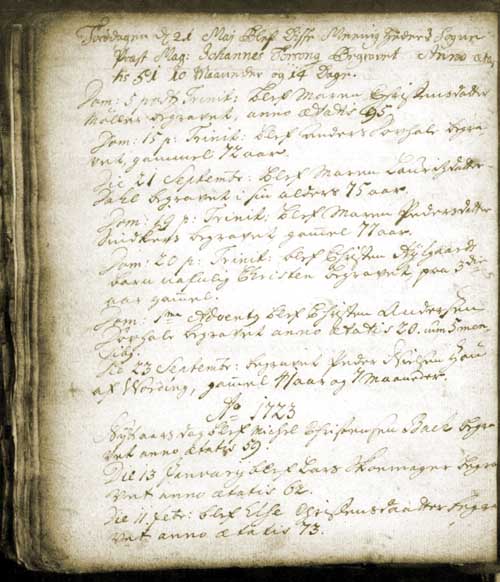 Torsdagen d. 21 Maj blef disse Menigheders Sogne
Præst Mag: Johannes begravet Anno æta
tis 51 10 Maaneder og 14 Dage.
Dom: 5 post Trinit: blef Maren Christensdatter
Møller begravet, anno ætatis 95.
Dom: 15 p: Trinit: blef Anders begra
vet, gammel 72 aar.
Die 21 Septembr: blef Maren Lauridsdatter
Dahl begravet i sin alders 75 aar.
Dom: 19 p: Trinit: blef Maren Pedersdatter
begravet gamel 77 aar.
Dom: 20 p: Trinit: blef Christen
barn nafnlig Christen begravet paa 3die
aar gamel.
Dom: 1ma Adventq blef Christen Andersen
begravet anno ætatis 20.
Die 23 Septembr: begravet Peder Nielsen
af Wording, gamel 71 aar og 7 Maaneder.
Ao 1723
Nytaarsdag blef Michel Christensen Bach begra
vet anno ætatis 59.
Die 13 Januarij blef Lars Skomager begra
vet anno ætatis 62.
Die 11 Febr: blef Else Christensdaatter begra
vet anno ætatis 73.